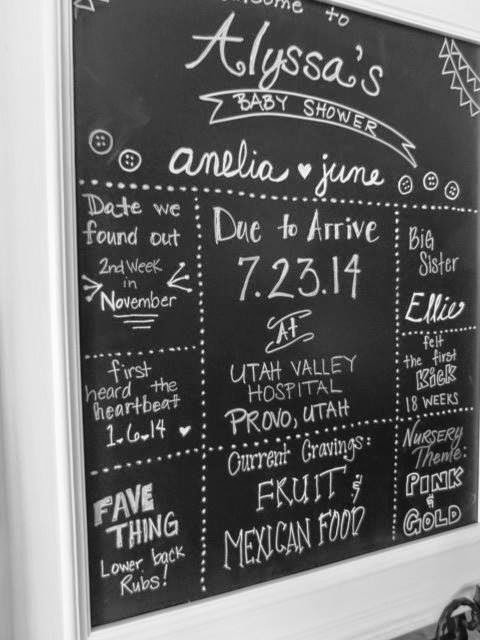 to
Alyssa's
BABY SHOWER
anelia ♥ june
Date we
found out
2nd Week
in
November
first
heard the
heartbeat
1.6.14 ♥
FAVE
THING
Lower back
Rubs!
Due to Arrive
7.23.14
AT
UTAH VALLEY
HOSPITAL
PROVO, UTAH
Current Cravings:
FRUIT &
MEXICAN FOOD
BiG
Sister
Ellie
felt
the first
Kick
18 WEEKS
NURSERY
Theme:
PINK
&
GOLD